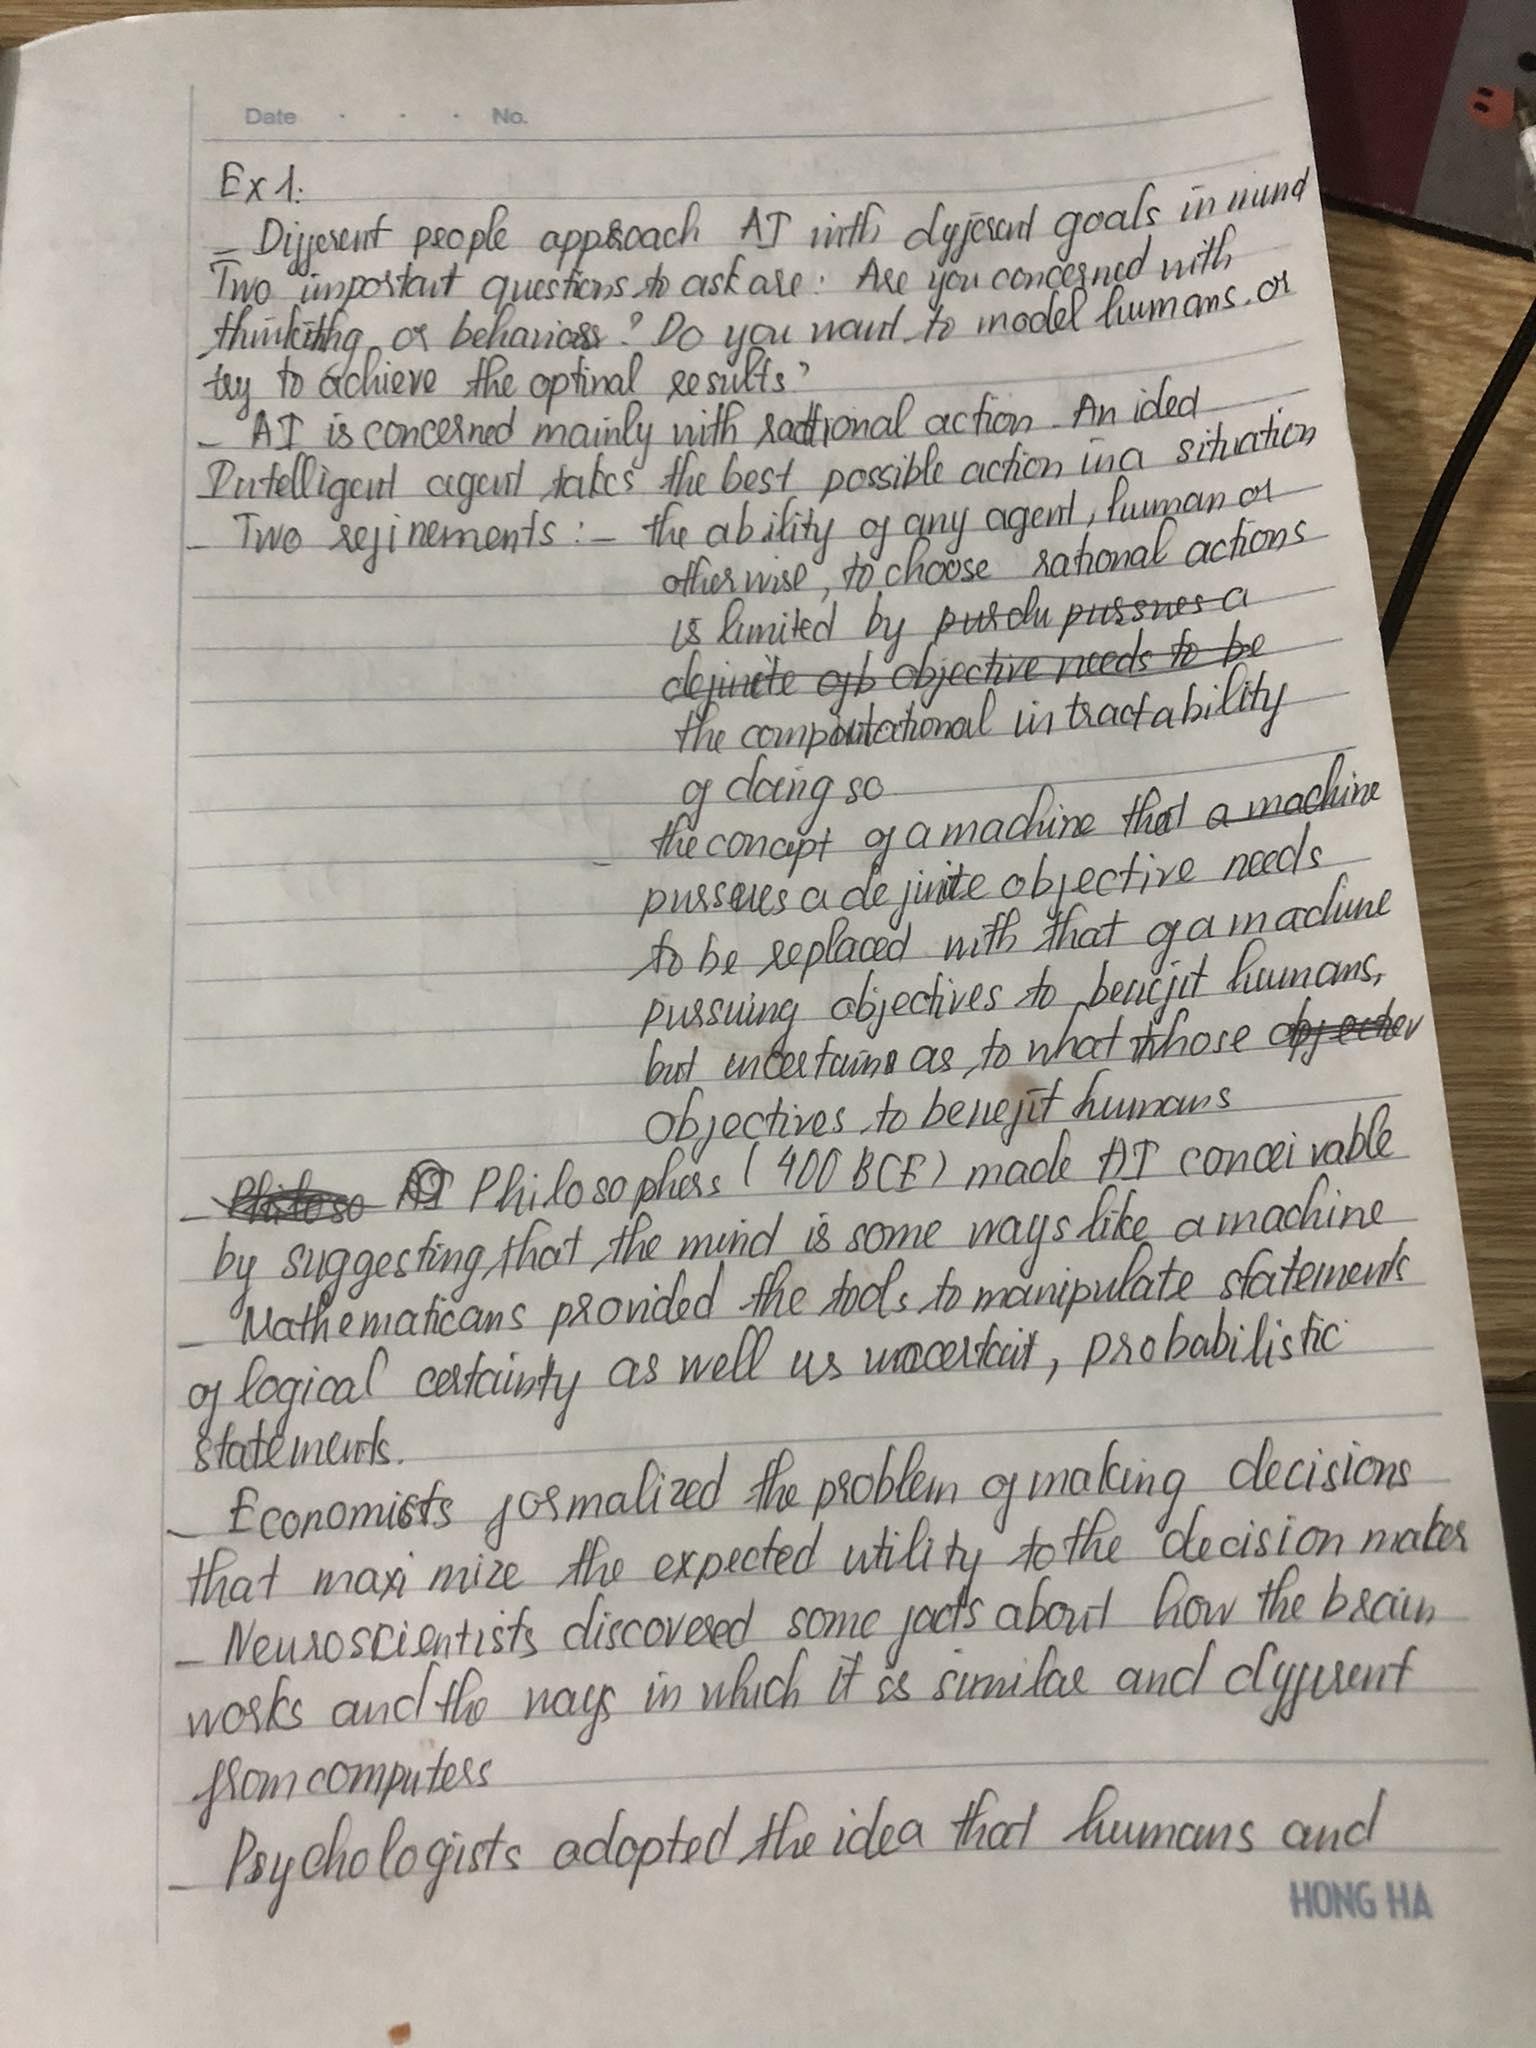 Date . . . No.
Ex 1:
- Different people approach AI with different goals in mind
Two important questions to ask are: Are you concerned with
thinking or behavior? Do you want to model humans, or
try to achieve the optinal results?
- AI is concerned mainly with rational action. An ideal
Intelligent agent takes the best possible action in a situation
- Two refinements: - the ability of any agent, human or
otherwise, to choose rational actions
is limited by
the computational intractability
of doing so
- the concept of a machine that
pursues a definite objective needs
to be replaced with that of a machine
pursuing objectives to benefit humans,
but uncertain as to what those
objectives to benefit humans
- Philosophers (400 BCE) made AI conceivable
by suggesting that the mind is some ways like a machine
- Mathematicans provided the tools to manipulate statements
of logical certainty as well us uncertait, probabilistic
statements.
- Economists formalized the problem of making decisions
that maximize the expected utility to the decision maker
- Neuroscientists discovered some facts about how the brain
works and the ways in which it is similar and different
from computers
- Psychologists adopted the idea that humans and
HONG HA